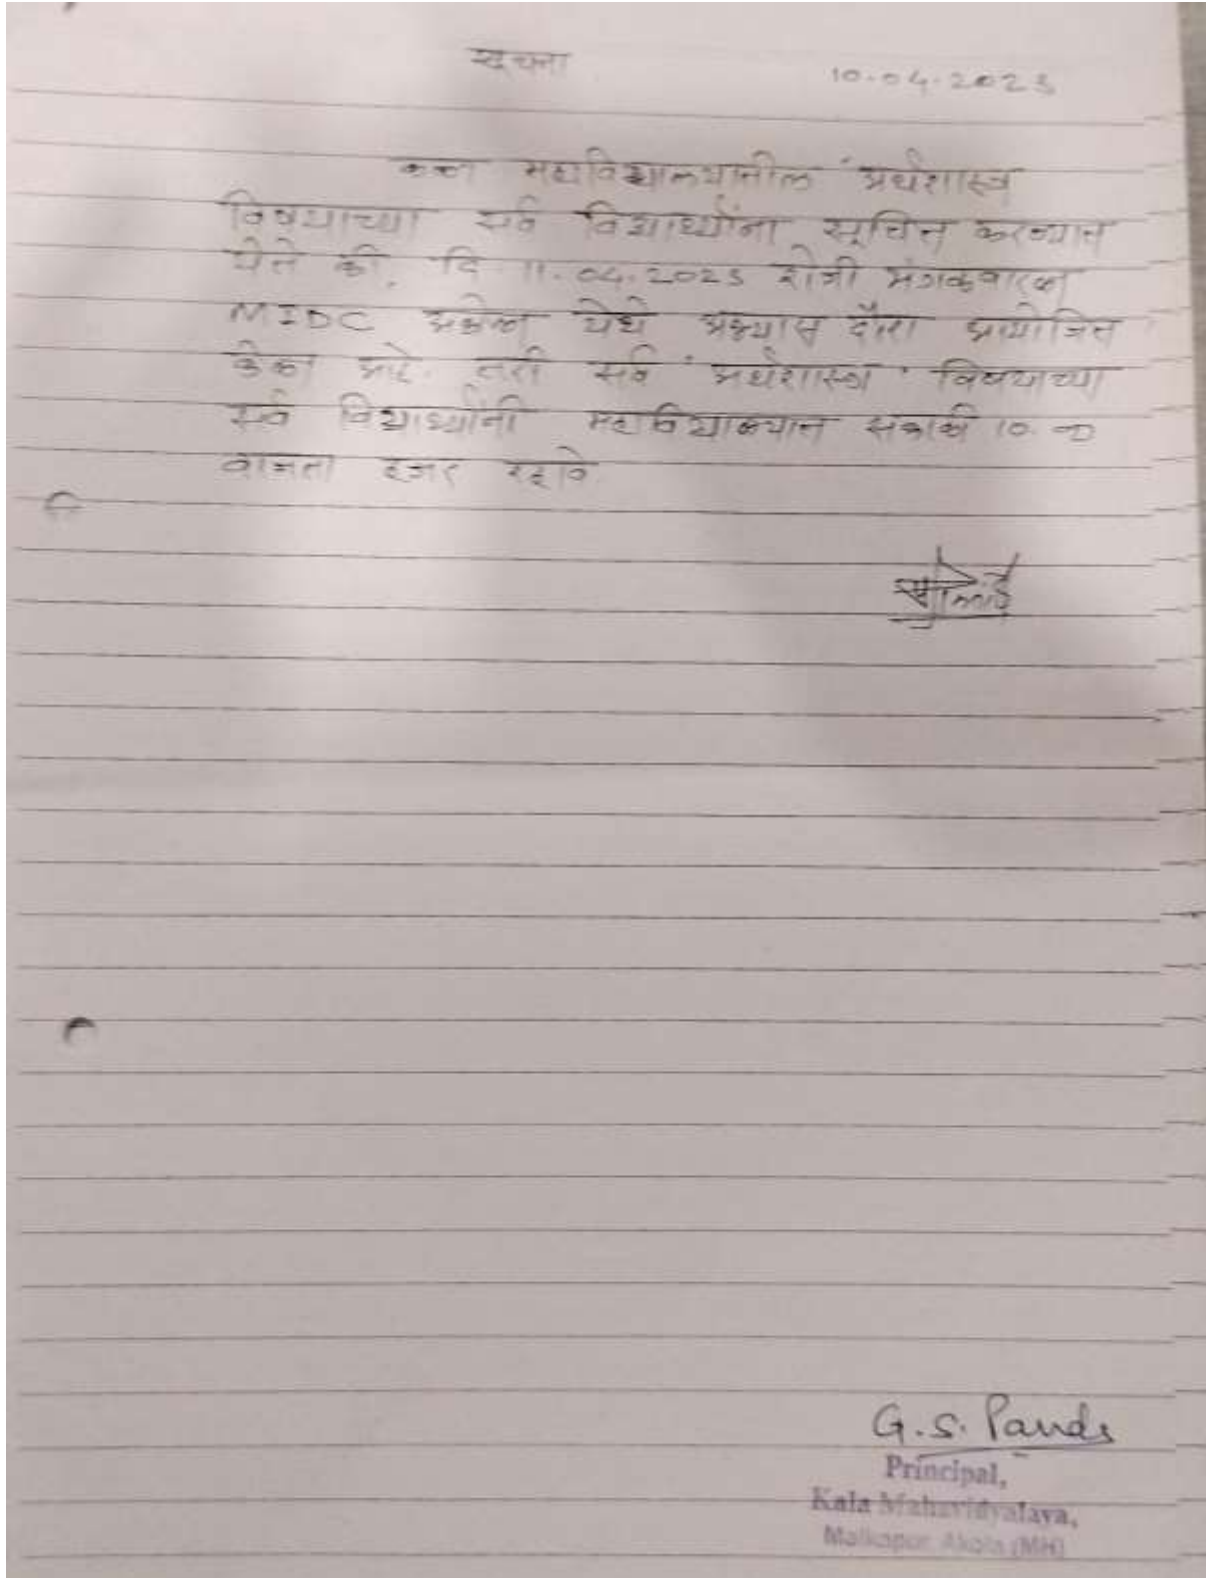 सूचना
10.04.2023
कला महाविद्यालयातील 'अर्थशास्त्र
विषयाच्या सर्व विद्यार्थ्यांना सूचित करण्यात
येते की, दि. 11.04.2023 रोजी मंगळवारला
MIDC अकोला येथे अभ्यास दौरा आयोजित
केला आहे. तरी सर्व 'अर्थशास्त्र' विषयाच्या
सर्व विद्यार्थ्यांनी महाविद्यालयात सकाळी 10.00
वाजता हजर रहावे
G.S. Pande
Principal,
Kala Mahavidyalaya,
Malkapur, Akola (MH)